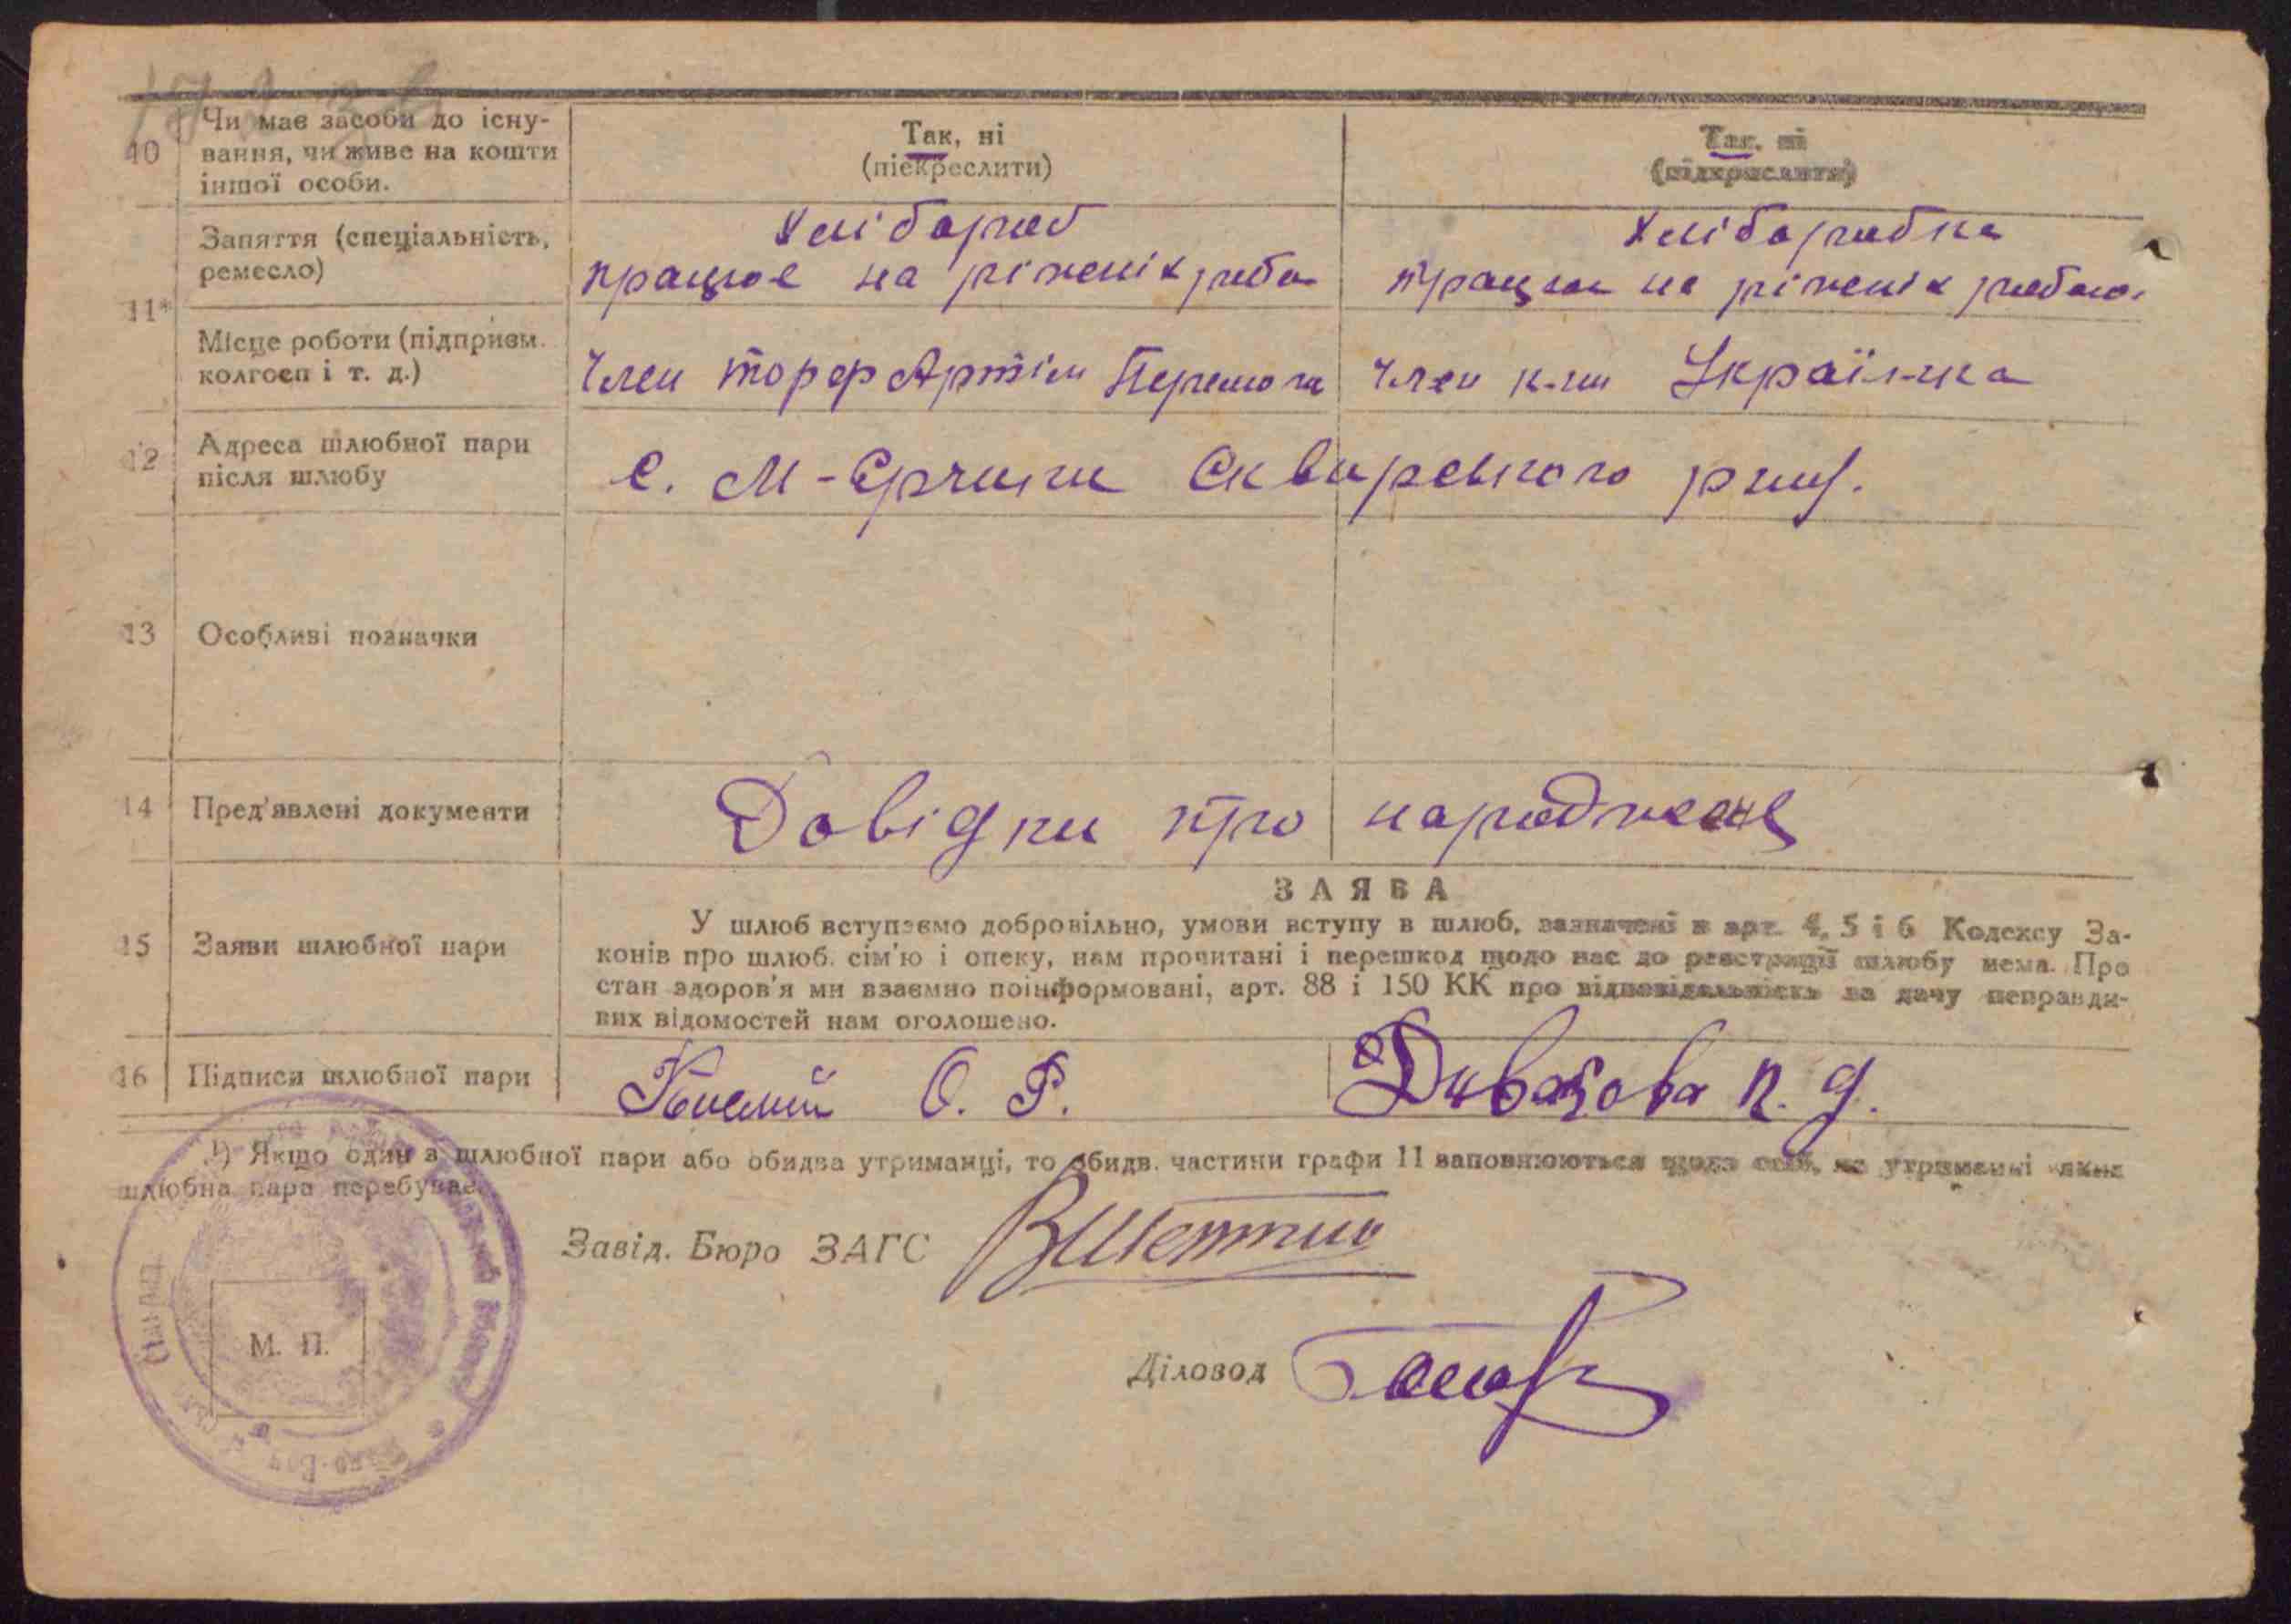 10
Чи має засоби до існу-
вання, чи живе на кошти
іншої особи.
Так, ні
(піекреслити)
Так, ні
(підкреслити)
11*
Заняття (спеціальність,
ремесло)
Хлібороб
працює на різеніх
Хліборобка
працює на різеніх
Місце роботи (підприєм.
колгосп і т. д.)
Член торф Артіли Перемога
Член к-пи Українка
12
Адреса шлюбної пари
після шлюбу
с. М-Єрчики Сквирського
13
Особливі позначки
14
Пред'явлені документи
Довідки про народження
15
Заяви шлюбної пари
ЗАЯВА
У шлюб вступаємо добровільно, умови вступу в шлюб, зазначені в арт. 4, 5 і 6 Кодексу За-
конів про шлюб. сім'ю і опеку, нам прочитані і перешкод щодо нас до реєстрації шлюбу нема. Про
стан здоров'я ми взаємно поінформовані, арт. 88 і 150 КК про відповідальність за дачу неправди-
вих відомостей нам оголошено.
16
Підписи шлюбної пари
О. Р.
П. Д.
¹) Якщо один з шлюбної пари або обидва утриманці, то обидв. частини графи 11 заповнюються щодо осіб, на утриманні яких
шлюбна пара перебуває.
Завід. Бюро ЗАГС
Діловод
М. П.